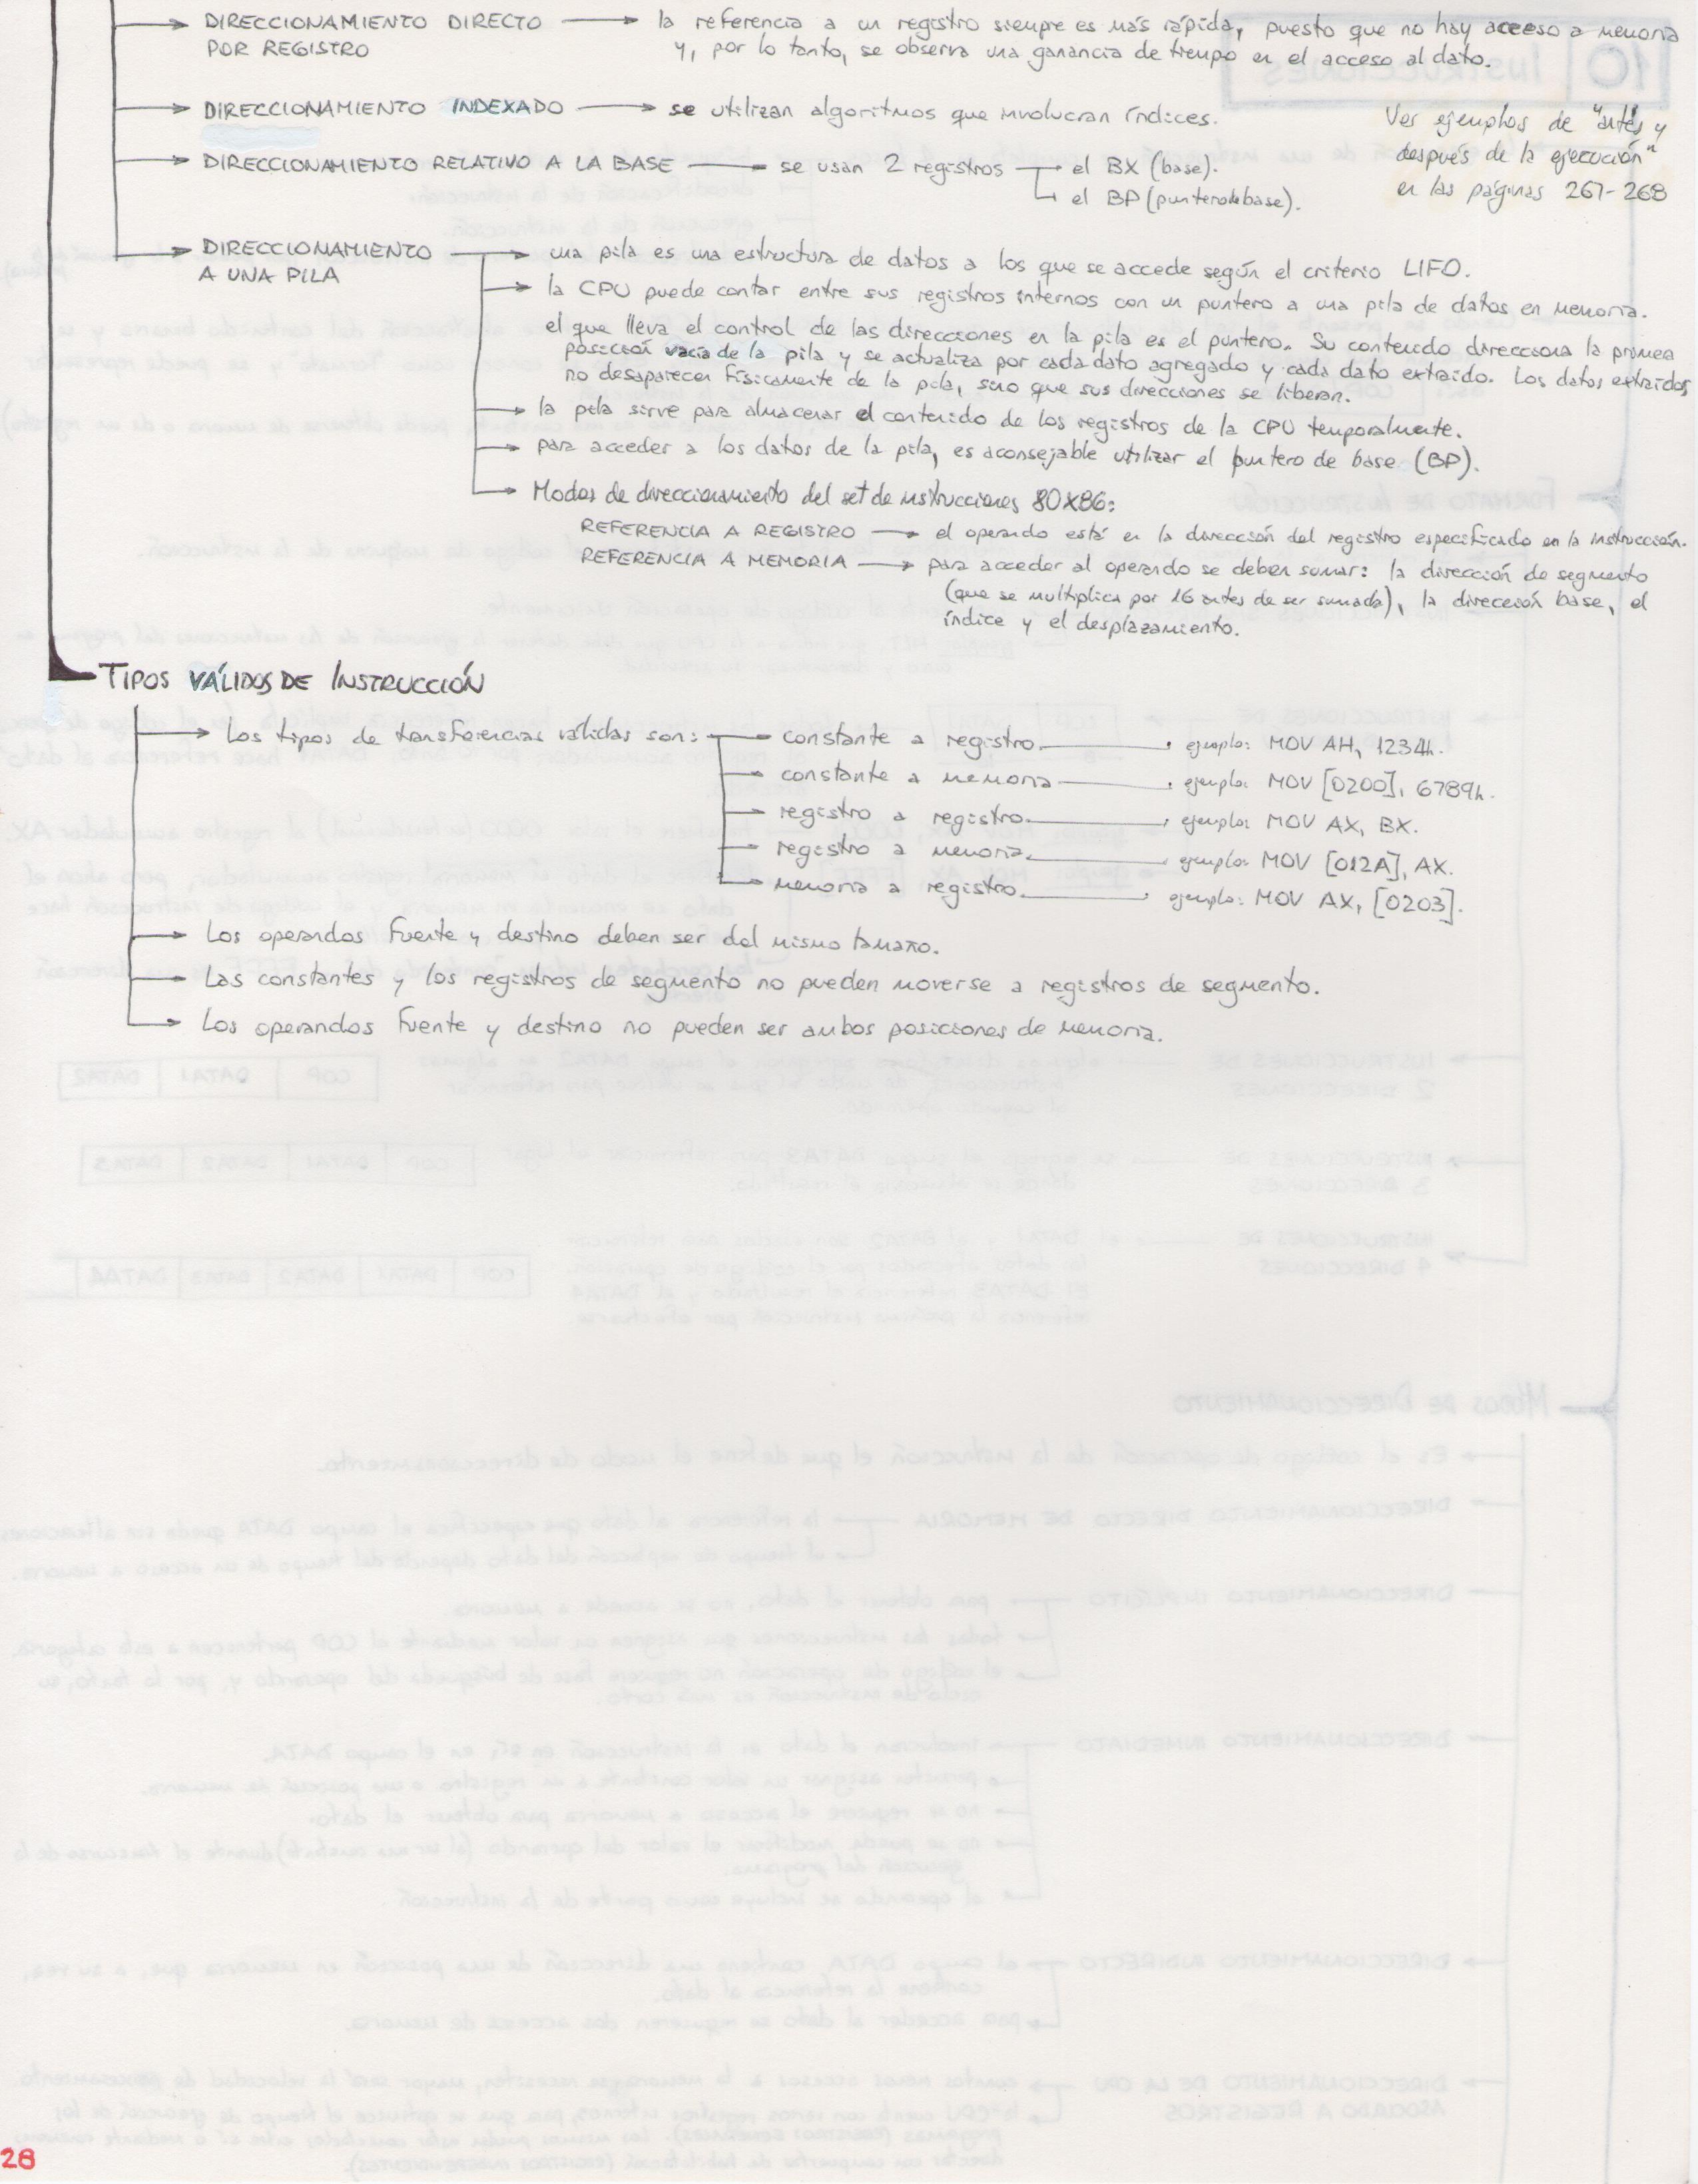 DIRECCIONAMIENTO DIRECTO POR REGISTRO → la referencia a un registro siempre es más rápida, puesto que no hay acceso a memoria
y, por lo tanto, se observa una ganancia de tiempo en el acceso al dato.
DIRECCIONAMIENTO INDEXADO → se utilizan algoritmos que involucran índices.
Ver ejemplos de "antes y
después de la ejecución"
en las páginas 267-268
DIRECCIONAMIENTO RELATIVO A LA BASE → se usan 2 registros → el BX (base).
el BP (puntero de base).
DIRECCIONAMIENTO A UNA PILA → una pila es una estructura de datos a los que se accede según el criterio LIFO.
la CPU puede contar entre sus registros internos con un puntero a una pila de datos en memoria.
el que lleva el control de las direcciones en la pila es el puntero. Su contenido direcciona la primea
posición vacía de la pila y se actualiza por cada dato agregado y cada dato extraído. Los datos extraídos
no desaparecen físicamente de la pila, sino que sus direcciones se liberan.
la pila sirve para almacenar el contenido de los registros de la CPU temporalmente.
para acceder a los datos de la pila, es aconsejable utilizar el puntero de base (BP).
Modos de direccionamiento del set de instrucciones 80X86:
REFERENCIA A REGISTRO → el operando está en la dirección del registro especificado en la instrucción.
REFERENCIA A MEMORIA → para acceder al operando se deben sumar: la dirección de segmento
(que se multiplica por 16 antes de ser sumada), la dirección base, el
índice y el desplazamiento.
TIPOS VÁLIDOS DE INSTRUCCIÓN
Los tipos de transferencias válidas son: constante a registro. ejemplo: MOV AH, 1234h.
constante a memoria ejemplo: MOV [0200], 6789h.
registro a registro. ejemplo: MOV AX, BX.
registro a memoria. ejemplo: MOV [012A], AX.
memoria a registro. ejemplo: MOV AX, [0203].
Los operandos fuente y destino deben ser del mismo tamaño.
Las constantes y los registros de segmento no pueden moverse a registros de segmento.
Los operandos fuente y destino no pueden ser ambos posiciones de memoria.
28